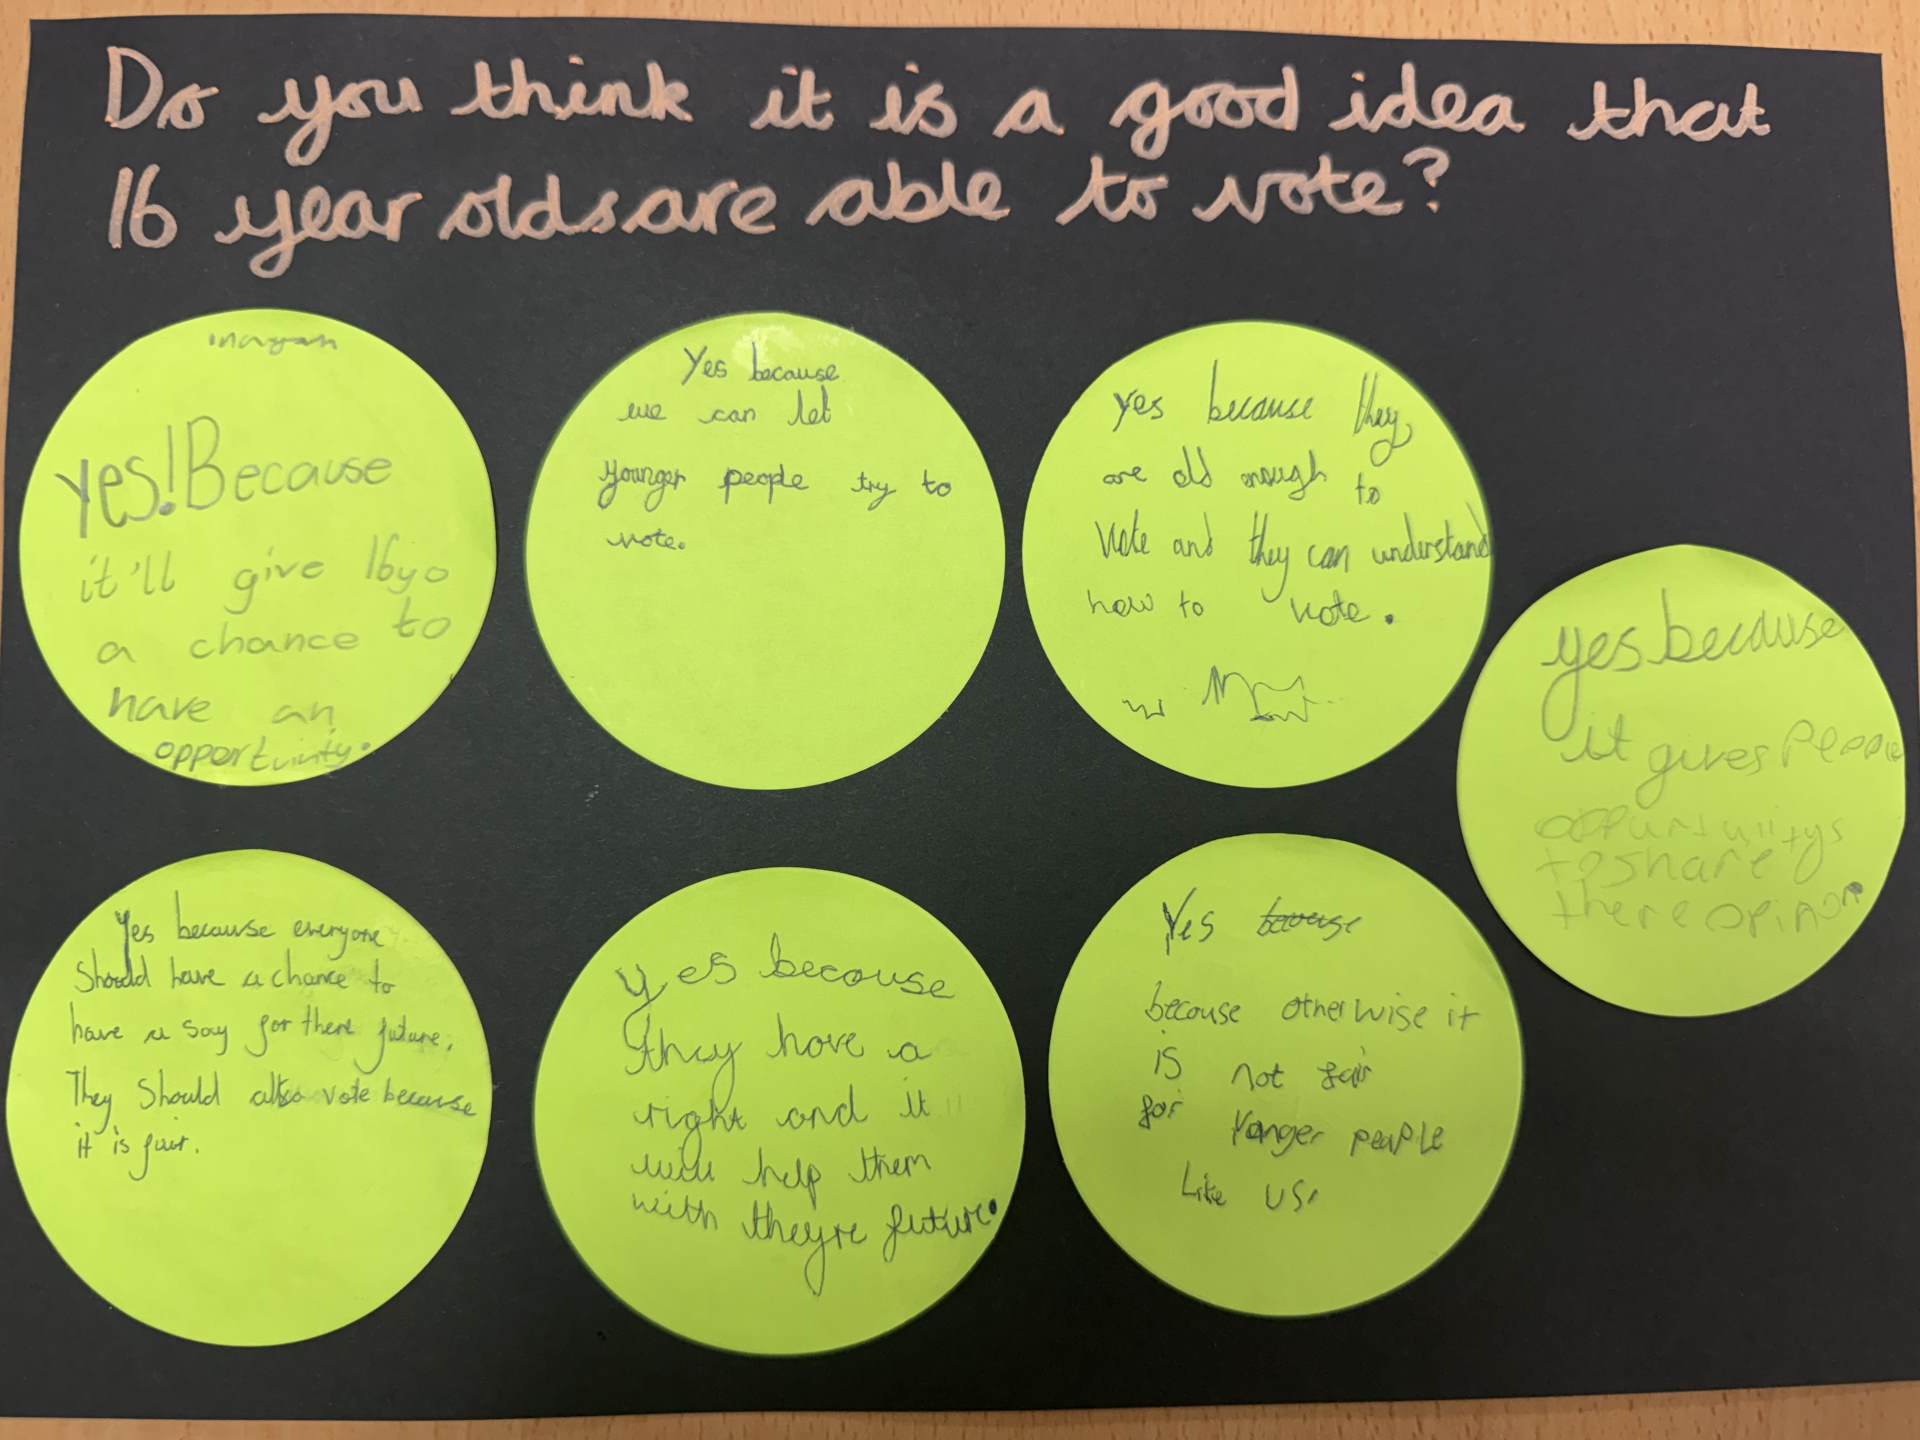 Do you think it is a good idea that
16 year olds are able to vote?
inayah
yes! Because
it'll give 16yo
a chance to
have an
opportuinity.
Yes because
we can let
younger people try to
vote.
yes because they
are old enough to
vote and they can understand
how to vote.
yes because
it gives People
oppurtuniitys
to share
there opinon.
Yes because everyone
Should have a chance to
have a say for there future.
They Should also vote because
it is fair.
yes because
they have a
right and it
will help them
with theyre future.
Yes
because otherwise it
is not fair
for Yonger people
Like us.